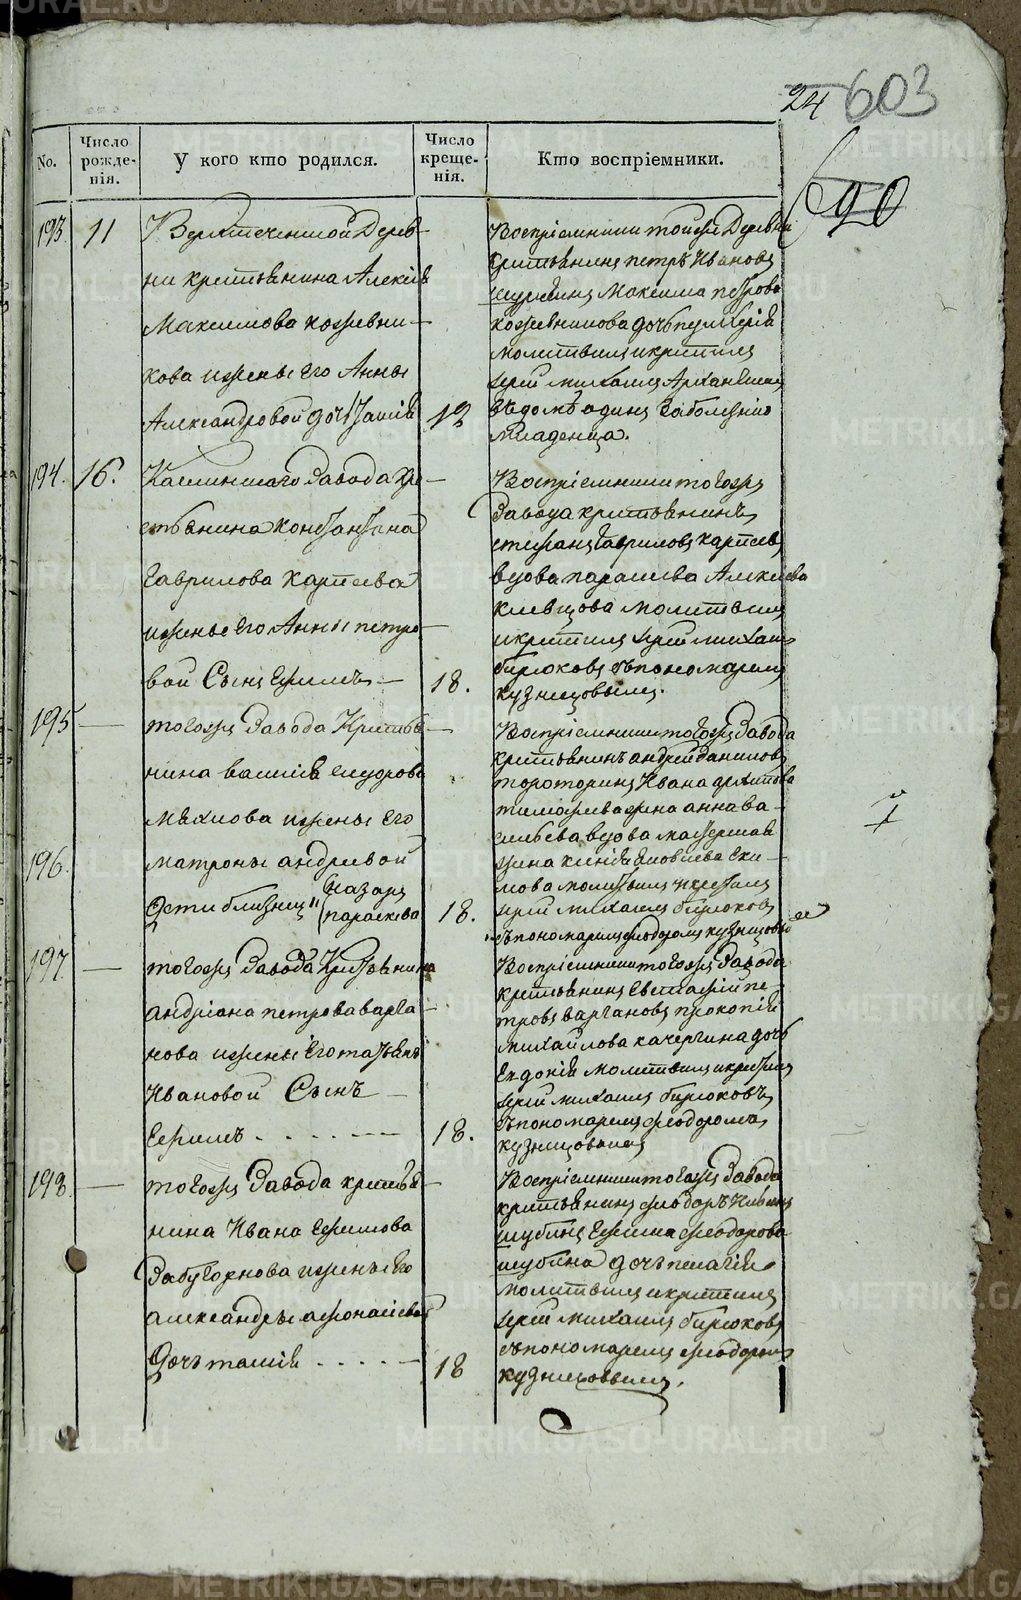 24 603
90
No.
Число рожде-нія.
У кого кто родился.
Число креще-нія.
Кто воспріемники.
193
11
Дерев-
ни крестьянина Алексія
Максимова кожевни-
кова и жены его Анны
Александровой дочь
12
Воспріемники той же Деревни
крестьянинъ петръ Ивановъ
Максима петрова
кожевникова дочь
молитвилъ и крестилъ
іерей михаилъ
в домѣ одинъ за болезнію
младенца.
194.
16.
Каслинскаго Завода кре-
стьянина константина
Гаврилова карпова
и жены его Анны петро-
вой Сынъ Ефимъ
18.
Воспріемники того жъ
Завода крестьянинъ
степанъ Гавриловъ
вдова параскева Алексѣева
молитвилъ
и крестилъ іерей михаилъ
бирюковъ съ пономаремъ
кузнецовымъ.
195
того жъ Завода Кресть-
нина василія сидорова
и жены его
196.
матроны андриевой
Дети близнецы
назаръ
параскева
18.
Воспріемники того жъ Завода
крестьянинъ андрей даниловъ
Ивана архипова
тимофеева жена анна ва-
сильева вдова
яковлева
молитвилъ и крестилъ
іерей михаилъ бирюковъ
съ пономаремъ феодоромъ кузнецовы
197
того жъ Завода Крестьянина
андріана петрова варга-
нова и жены его татьяны
Ивановой Сынъ
Ефимъ
18.
Воспріемники того жъ Завода
крестьянинъ Евстафій пе-
тровъ варгановъ прокопія
михайлова качергина дочь
Евдокія молитвилъ и крестилъ
іерей михаилъ бирюковъ
съ пономаремъ феодоромъ
кузнецовымъ
198.
того жъ Завода крестья-
нина Ивана Ефимова
Забугорнова и жены его
александры афонасіевой
Дочь таисія
18
Воспріемники того жъ Завода
крестьянинъ феодоръ
шубинъ Ефима феодорова
шубина дочь пелагія
молитвилъ и крестилъ
іерей михаилъ бирюковъ
съ пономаремъ феодоромъ
кузнецовымъ.
METRIKI.GASO-URAL.RU